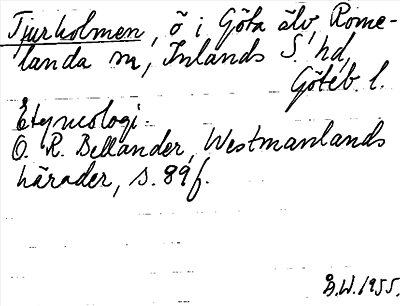 Tjurholmen, ö i Göta älv, Rome-
landa sn, Inlands S. hd,
Göteb. l.
Etymologi.
O. R. Bellander, Westmanlands
härader, s. 89f.
Å.W. 1955.